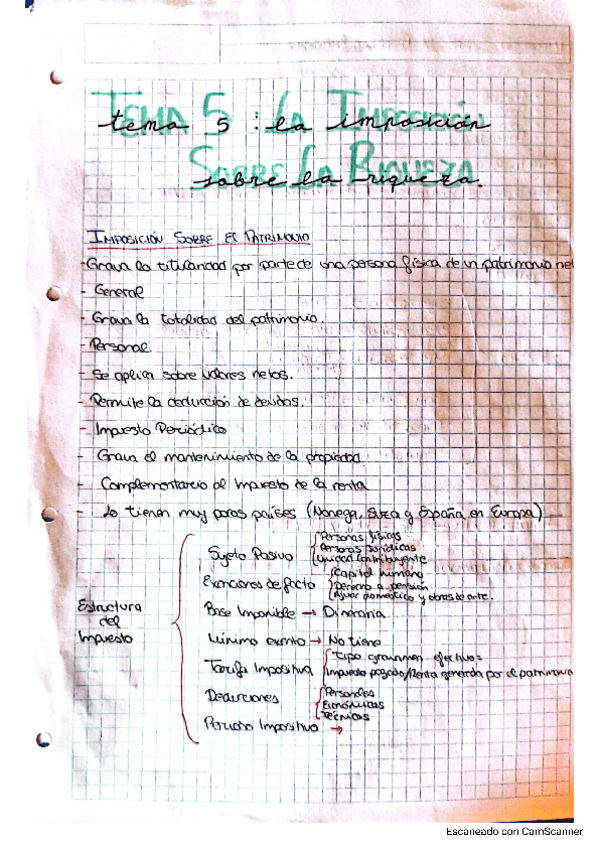 Tema 5: La Imposición
Sobre La Riqueza.
Imposición Sobre El Patrimonio
- Grava la titularidad por parte de una persona física de un patrimonio net
- General
- Grava la totalidad del patrimonio.
- Personal.
- Se aplica sobre valores netos.
- Permite la deducción de deudas.
- Impuesto Periódico
- Grava el mantenimiento de la propiedad
- Complementario al Impuesto de la renta
- Lo tienen muy pocos países (Noruega, Suiza y España en Europa)
Estructura del Impuesto
Sujeto Pasivo
Personas físicas
Personas jurídicas
Unidad contribuyente
Exenciones de facto
Capital humano
Derecho a pensión
Ajuar doméstico y obras de arte.
Base Imponible → Dineraria
Mínimo exento → No tiene
Tarifa Impositiva
Tipo gravamen efectivo =
Impuesto pagado/Renta generada por el patrimonio
Deducciones
Personales
Económicas
Técnicas
Periodo Impositivo →
Escaneado con CamScanner